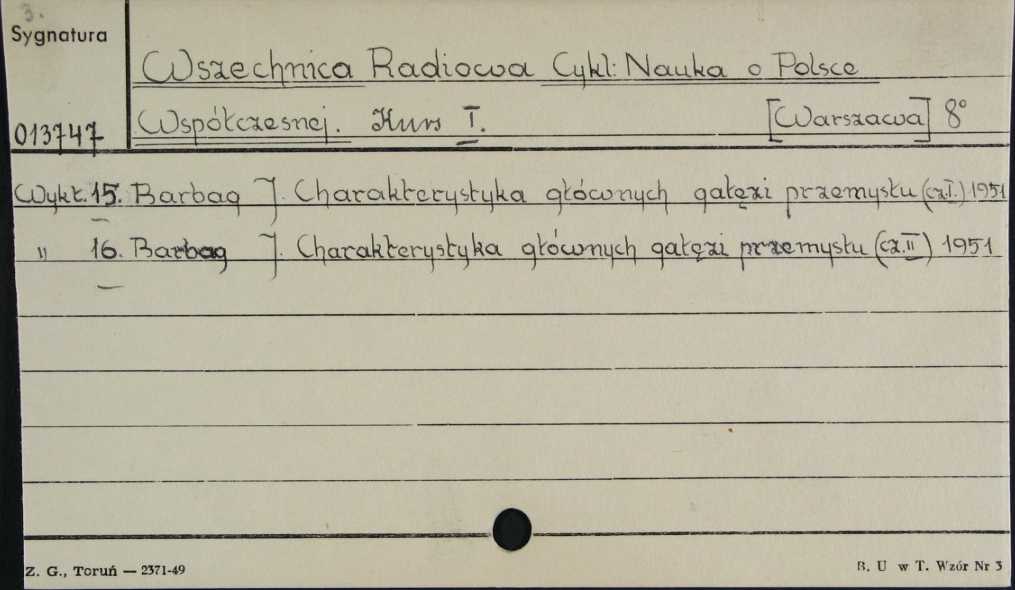 3.
Sygnatura
Wszechnica Radiowa Cykl: Nauka o Polsce
013747 Współczesnej. Kurs I. [Warszawa] 8°
Wykł. 15. Barbag J. Charakterystyka głównych gałęzi przemysłu (cz.I.) 1951
" 16. Barbag J. Charakterystyka głównych gałęzi przemysłu (cz.II) 1951
Z. G., Toruń — 2371-49
B. U w T. Wzór Nr 3